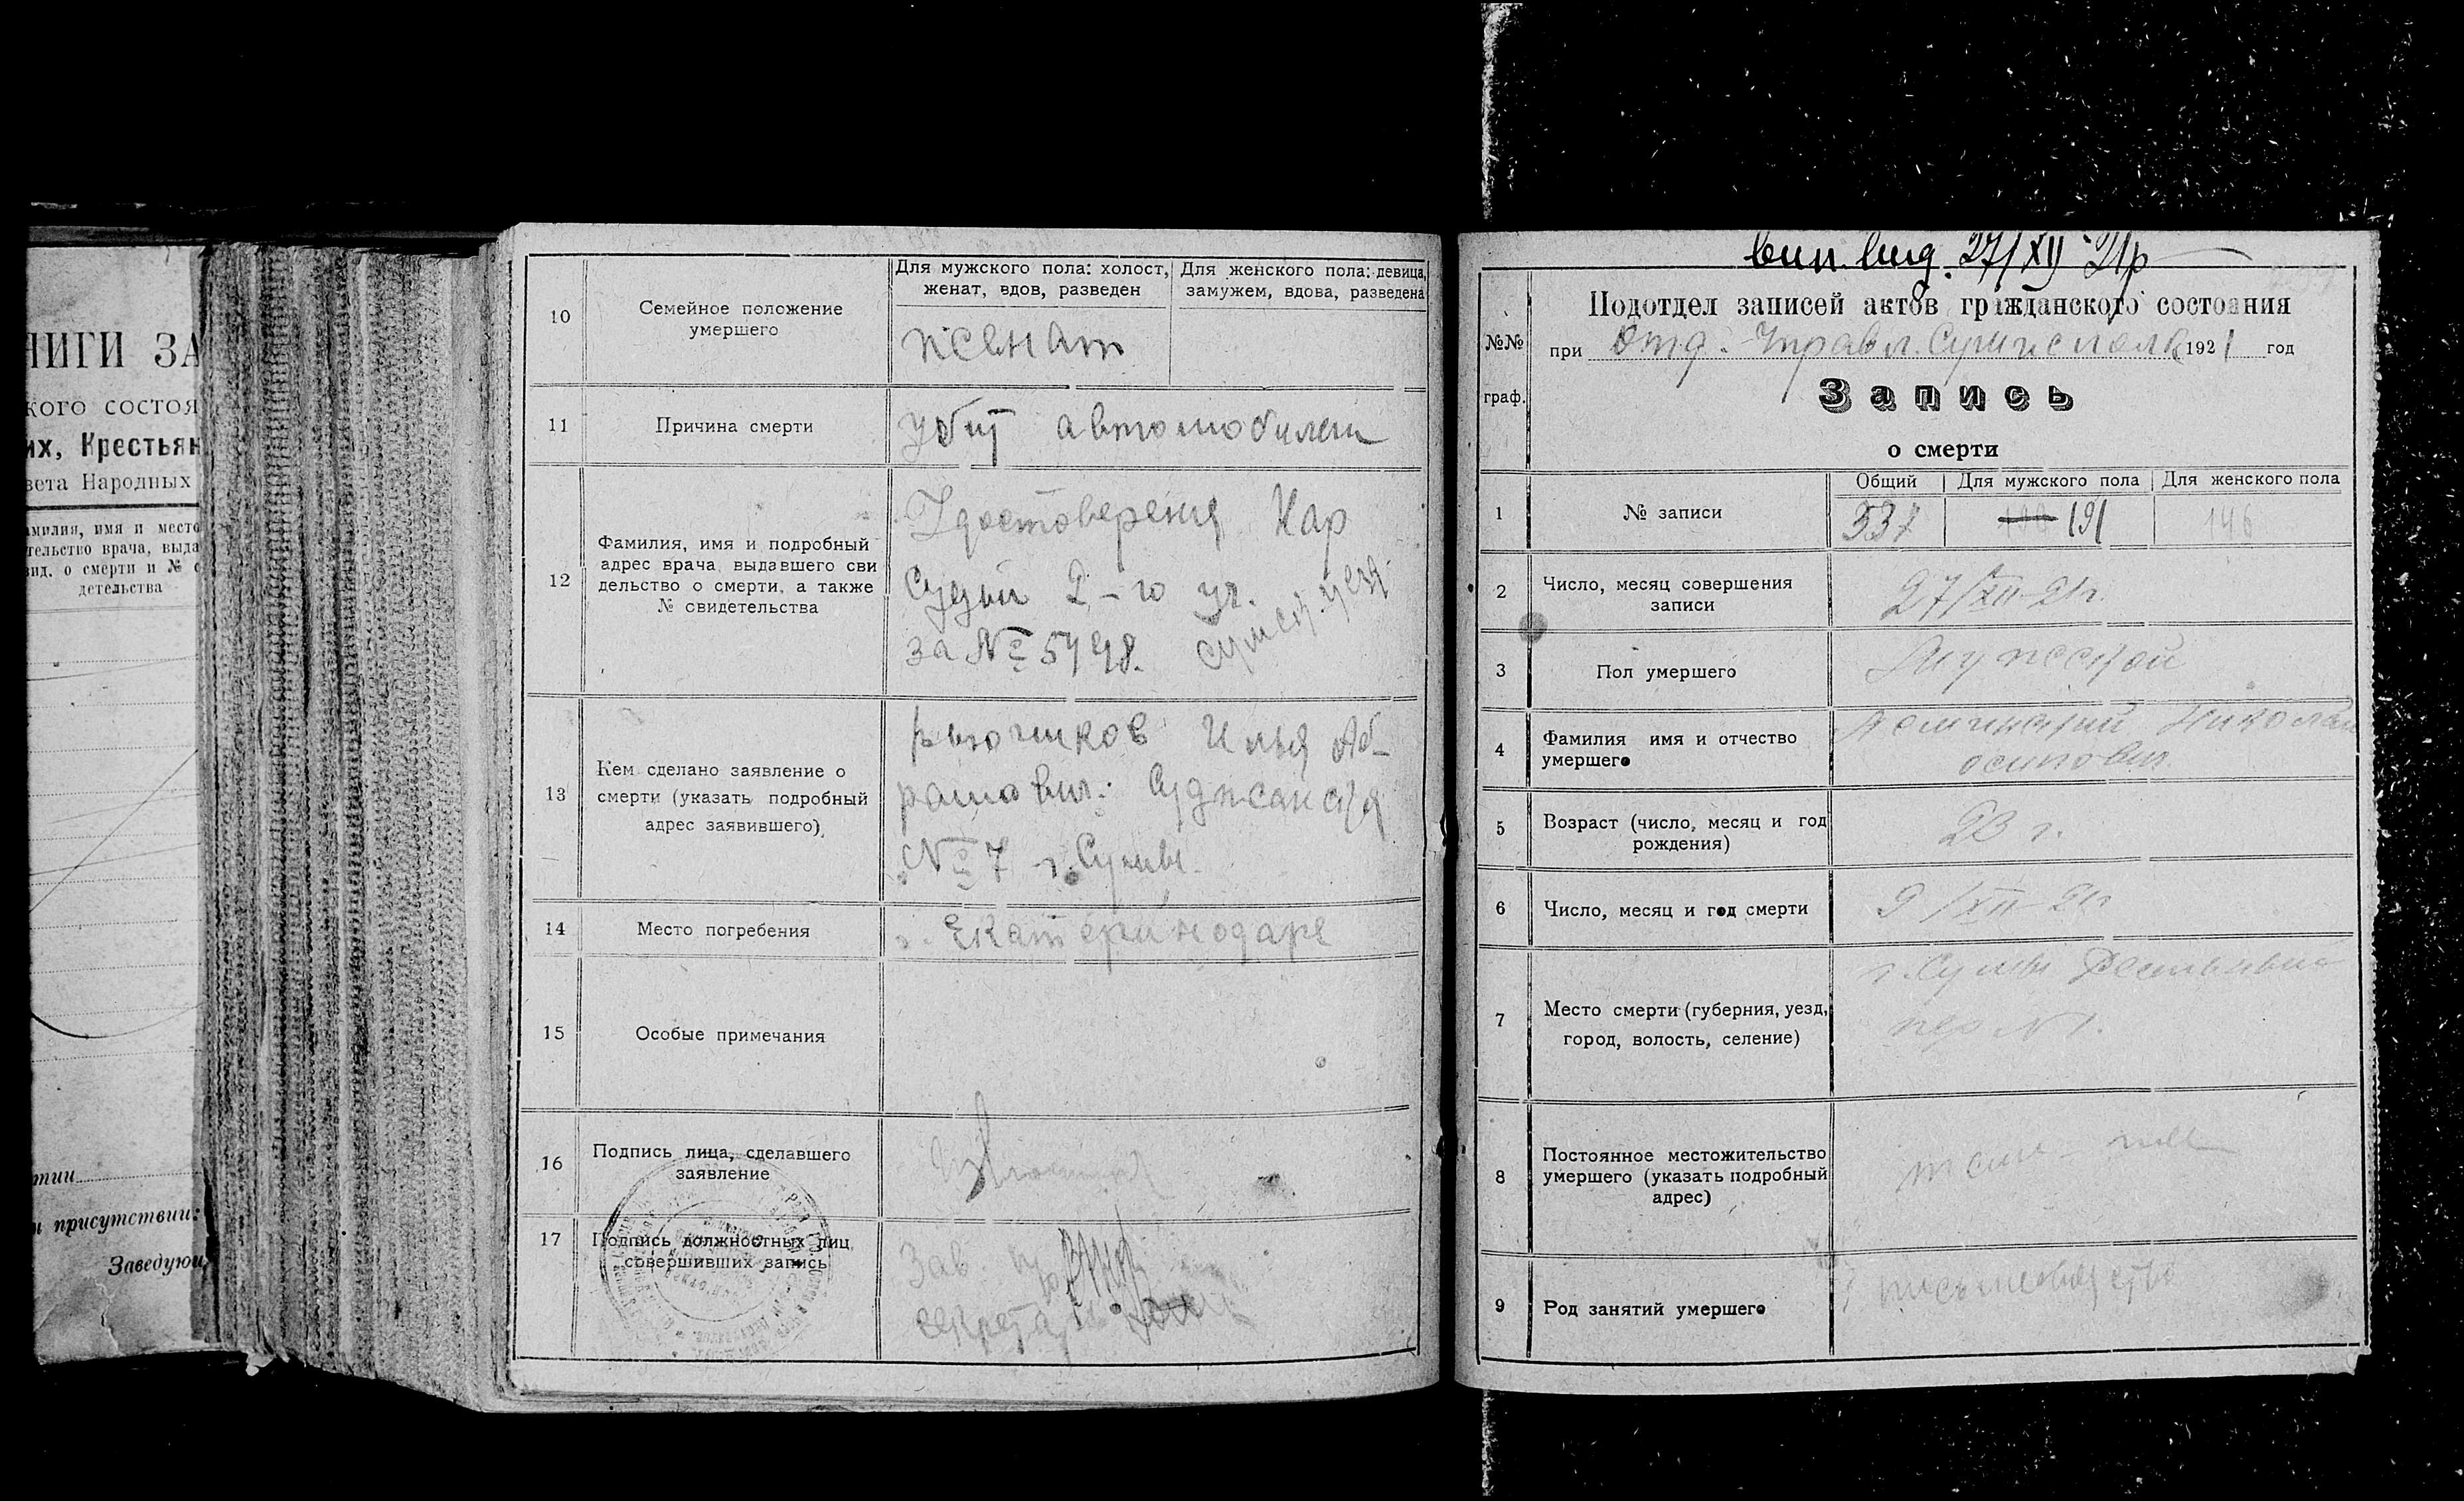 НИГИ ЗА
кого состоя
их, Крестьян
вета Народных
амилия, имя и место
тельство врача, выда
вид. о смерти и № с
детельства
тии
и присутствии:
Заведую
10
Семейное положение
умершего
Для мужского пола: холост,
женат, вдов, разведен
Для женского пола: девица,
замужем, вдова, разведена
женат
11
Причина смерти
убит автомобилем
12
Фамилия, имя и подробный
адрес врача, выдавшего сви
дельство о смерти, а также
№ свидетельства
Удостоверения Нар
Судьи 2-го уч.
за № Сумск. уезд.
13
Кем сделано заявление о
смерти (указать подробный
адрес заявившего)
Илья Аб-
рамович: Суджанская
№ 7 г. Сумы.
14
Место погребения
г. Екатеринодаре
15
Особые примечания
16
Подпись лица, сделавшего
заявление
17
Подпись должностных лиц
совершивших запись
Зав.
секретарь
27/XII 21р
№№
граф.
Подотдел записей актов гражданского состояния
при Отд. Управл. 1921 год
Запись
о смерти
1
№ записи
Общий
Для мужского пола
Для женского пола
337
191
146
2
Число, месяц совершения
записи
27/XII-21г.
3
Пол умершего
Мужской
4
Фамилия имя и отчество
умершего
Николай
осипович
5
Возраст (число, месяц и год
рождения)
23 г.
6
Число, месяц и год смерти
9/XII-21г
7
Место смерти (губерния, уезд,
город, волость, селение)
г. Сумы
пер № 1.
8
Постоянное местожительство
умершего (указать подробный
адрес)
там-же
9
Род занятий умершего